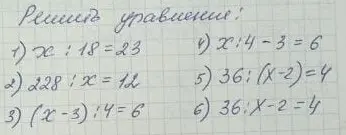 Решить уравнение:
1) x : 18 = 23
2) 228 : x = 12
3) (x - 3) : 4 = 6
4) x : 4 - 3 = 6
5) 36 : (x - 2) = 4
6) 36 : x - 2 = 4